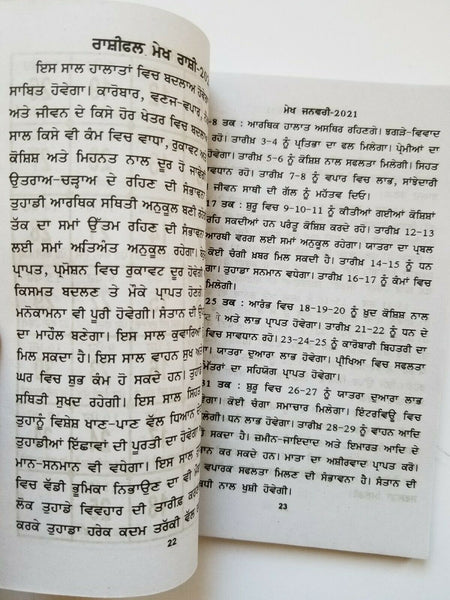 ਰਾਸ਼ੀਫਲ ਮੇਖ ਰਾਸ਼ੀ-202
ਇਸ ਸਾਲ ਹਾਲਾਤਾਂ ਵਿਚ ਬਦਲਾਅ
ਸਾਬਿਤ ਹੋਵੇਗਾ। ਕਾਰੋਬਾਰ, ਵਣਜ-ਵਪਾਰ,
ਅਤੇ ਜੀਵਨ ਦੇ ਕਿਸੇ ਹੋਰ ਖੇਤਰ ਵਿਚ ਬਦਲਾ
ਸਾਲ ਕਿਸੇ ਵੀ ਕੰਮ ਵਿਚ ਵਾਧਾ, ਰੁਕਾਵਟ ਅ
ਕੋਸ਼ਿਸ਼ ਅਤੇ ਮਿਹਨਤ ਨਾਲ ਦੂਰ ਹੋ ਜਾਵੇ
ਉਤਰਾਅ-ਚੜ੍ਹਾਅ ਦੇ ਰਹਿਣ ਦੀ ਸੰਭਾਵ
ਤੁਹਾਡੀ ਆਰਥਿਕ ਸਥਿਤੀ ਅਨੁਕੂਲ ਬਣੀ
ਤੱਕ ਦਾ ਸਮਾਂ ਉੱਤਮ ਰਹਿਣ ਦੀ ਸੰਭਾਵ
ਲਈ ਸਮਾਂ ਅਤਿਅੰਤ ਅਨੁਕੂਲ ਰਹੇਗਾ।
ਪ੍ਰਾਪਤ, ਪ੍ਰਮੋਸ਼ਨ ਵਿਚ ਰੁਕਾਵਟ ਦੂਰ ਹੋਵੇਗੀ
ਕਿਸਮਤ ਬਦਲਣ ਤੇ ਮੌਕੇ ਪ੍ਰਾਪਤ ਹੋਣਗੇ
ਮਨੋਕਾਮਨਾ ਵੀ ਪੂਰੀ ਹੋਵੇਗੀ। ਸੰਤਾਨ ਦੀ ਉ
ਦਾ ਮਾਹੌਲ ਬਣੇਗਾ। ਇਸ ਸਾਲ ਕੁਵਾਰਿਆਂ
ਮਿਲ ਸਕਦਾ ਹੈ। ਇਸ ਸਾਲ ਵਾਹਨ ਸੁਖ ਅਤੇ
ਘਰ ਵਿਚ ਸ਼ੁਭ ਕੰਮ ਹੋ ਸਕਦੇ ਹਨ। ਤੁਹਾਡੀ
ਸਥਿਤੀ ਸੁਖਦ ਰਹੇਗੀ। ਇਸ ਸਾਲ ਮਾਤਾ
ਤੁਹਾਨੂੰ ਵਿਸ਼ੇਸ਼ ਖਾਣ-ਪਾਣ ਵੱਲ ਧਿਆਨ
ਤੁਹਾਡੀਆਂ ਇੱਛਾਵਾਂ ਦੀ ਪੂਰਤੀ ਦਾ ਹੋਵੇਗਾ।
ਮਾਨ-ਸਨਮਾਨ ਵੀ ਵਧੇਗਾ। ਇਸ ਸਾਲ
ਵਿਚ ਵੱਡੀ ਭੂਮਿਕਾ ਨਿਭਾਉਣ ਦਾ ਵੀ
ਲੋਕ ਤੁਹਾਡੇ ਵਿਵਹਾਰ ਦੀ ਤਾਰੀਫ਼
ਕਰਕੇ ਤੁਹਾਡਾ ਹਰੇਕ ਕਦਮ ਤਰੱਕੀ ਵੱਲ
22
ਮੇਖ ਜਨਵਰੀ-2021
-8 ਤਕ : ਆਰਥਿਕ ਹਾਲਾਤ ਅਸਥਿਰ ਰਹਿਣਗੇ। ਝਗੜੇ-ਵਿਵਾਦ
ਰਹੋ। ਤਾਰੀਖ਼ 3-4 ਨੂੰ ਪ੍ਰਤਿਭਾ ਦਾ ਫਲ ਮਿਲੇਗਾ। ਪ੍ਰੇਮੀਆਂ ਦਾ
ਹੋਵੇਗਾ। ਤਾਰੀਖ਼ 5-6 ਨੂੰ ਕੋਸ਼ਿਸ਼ ਨਾਲ ਸਫਲਤਾ ਮਿਲੇਗੀ। ਸਿਹਤ
ਵਧਾਨ ਰਹੋ। ਤਾਰੀਖ਼ 7-8 ਨੂੰ ਵਪਾਰ ਵਿਚ ਲਾਭ, ਸਾਂਝੇਦਾਰੀ
ਜੀਵਨ ਸਾਥੀ ਦੀ ਗੱਲ ਨੂੰ ਮਹੱਤਵ ਦਿਓ।
17 ਤਕ : ਸ਼ੁਰੂ ਵਿਚ 9-10-11 ਨੂੰ ਕੀਤੀਆਂ ਗਈਆਂ ਕੋਸ਼ਿਸ਼ਾਂ
ਰਹਿ ਸਕਦੀਆਂ ਹਨ ਪਰੰਤੂ ਕੋਸ਼ਿਸ਼ ਕਰਦੇ ਰਹੋ। ਤਾਰੀਖ਼ 12-13
ਆਰਥੀ ਵਰਗ ਲਈ ਸਮਾਂ ਅਨੁਕੂਲ ਰਹੇਗਾ। ਯਾਤਰਾ ਦਾ ਪ੍ਰਬਲ
ਕੋਈ ਚੰਗੀ ਖ਼ਬਰ ਮਿਲ ਸਕਦੀ ਹੈ। ਤਾਰੀਖ਼ 14-15 ਨੂੰ ਧਨ
ਗਾ। ਤੁਹਾਡਾ ਸਨਮਾਨ ਵਧੇਗਾ। ਤਾਰੀਖ਼ 16-17 ਨੂੰ ਕੰਮਾਂ ਵਿਚ
ਮਿਲੇਗੀ।
25 ਤਕ : ਆਰੰਭ ਵਿਚ 18-19-20 ਨੂੰ ਖ਼ੁਦ ਕੋਸ਼ਿਸ਼ ਨਾਲ
ਅਤੇ ਲਾਭ ਪ੍ਰਾਪਤ ਹੋਵੇਗਾ। ਤਾਰੀਖ਼ 21-22 ਨੂੰ ਧਨ ਦੇ
ਵਿਚ ਸਾਵਧਾਨ ਰਹੋ। 23-24-25 ਨੂੰ ਕਾਰੋਬਾਰੀ ਬਿਹਤਰੀ ਦਾ
ਯਾਤਰਾ ਦੁਆਰਾ ਲਾਭ ਹੋਵੇਗਾ। ਪ੍ਰੀਖਿਆ ਵਿਚ ਸਫਲਤਾ
ਤਰਾਂ ਦਾ ਸਹਿਯੋਗ ਪ੍ਰਾਪਤ ਹੋਵੇਗਾ।
31 ਤਕ : ਸ਼ੁਰੂ ਵਿਚ 26-27 ਨੂੰ ਯਾਤਰਾ ਦੁਆਰਾ ਲਾਭ
ਕੋਈ ਚੰਗਾ ਸਮਾਚਾਰ ਮਿਲੇਗਾ। ਇੰਟਰਵਿਊ ਵਿਚ
ਮਿਲੇਗੀ। ਧਨ ਲਾਭ ਹੋਵੇਗਾ। ਤਾਰੀਖ਼ 28-29 ਨੂੰ ਵਾਹਨ ਆਦਿ
ਸਕਦਾ ਹੈ। ਜ਼ਮੀਨ-ਜਾਇਦਾਦ ਅਤੇ ਇਮਾਰਤ ਆਦਿ ਦੇ
ਕੰਮ ਕਰ ਸਕਦੇ ਹਨ। ਮਾਤਾ ਦਾ ਅਸ਼ੀਰਵਾਦ ਪ੍ਰਾਪਤ ਕਰੋ।
ਵਪਾਰਕ ਸਫਲਤਾ ਮਿਲਣ ਦੀ ਸੰਭਾਵਨਾ ਹੈ। ਸੰਤਾਨ ਦੀ
ਧੀ ਨਾਲ ਖੁਸ਼ੀ ਹੋਵੇਗੀ।
23